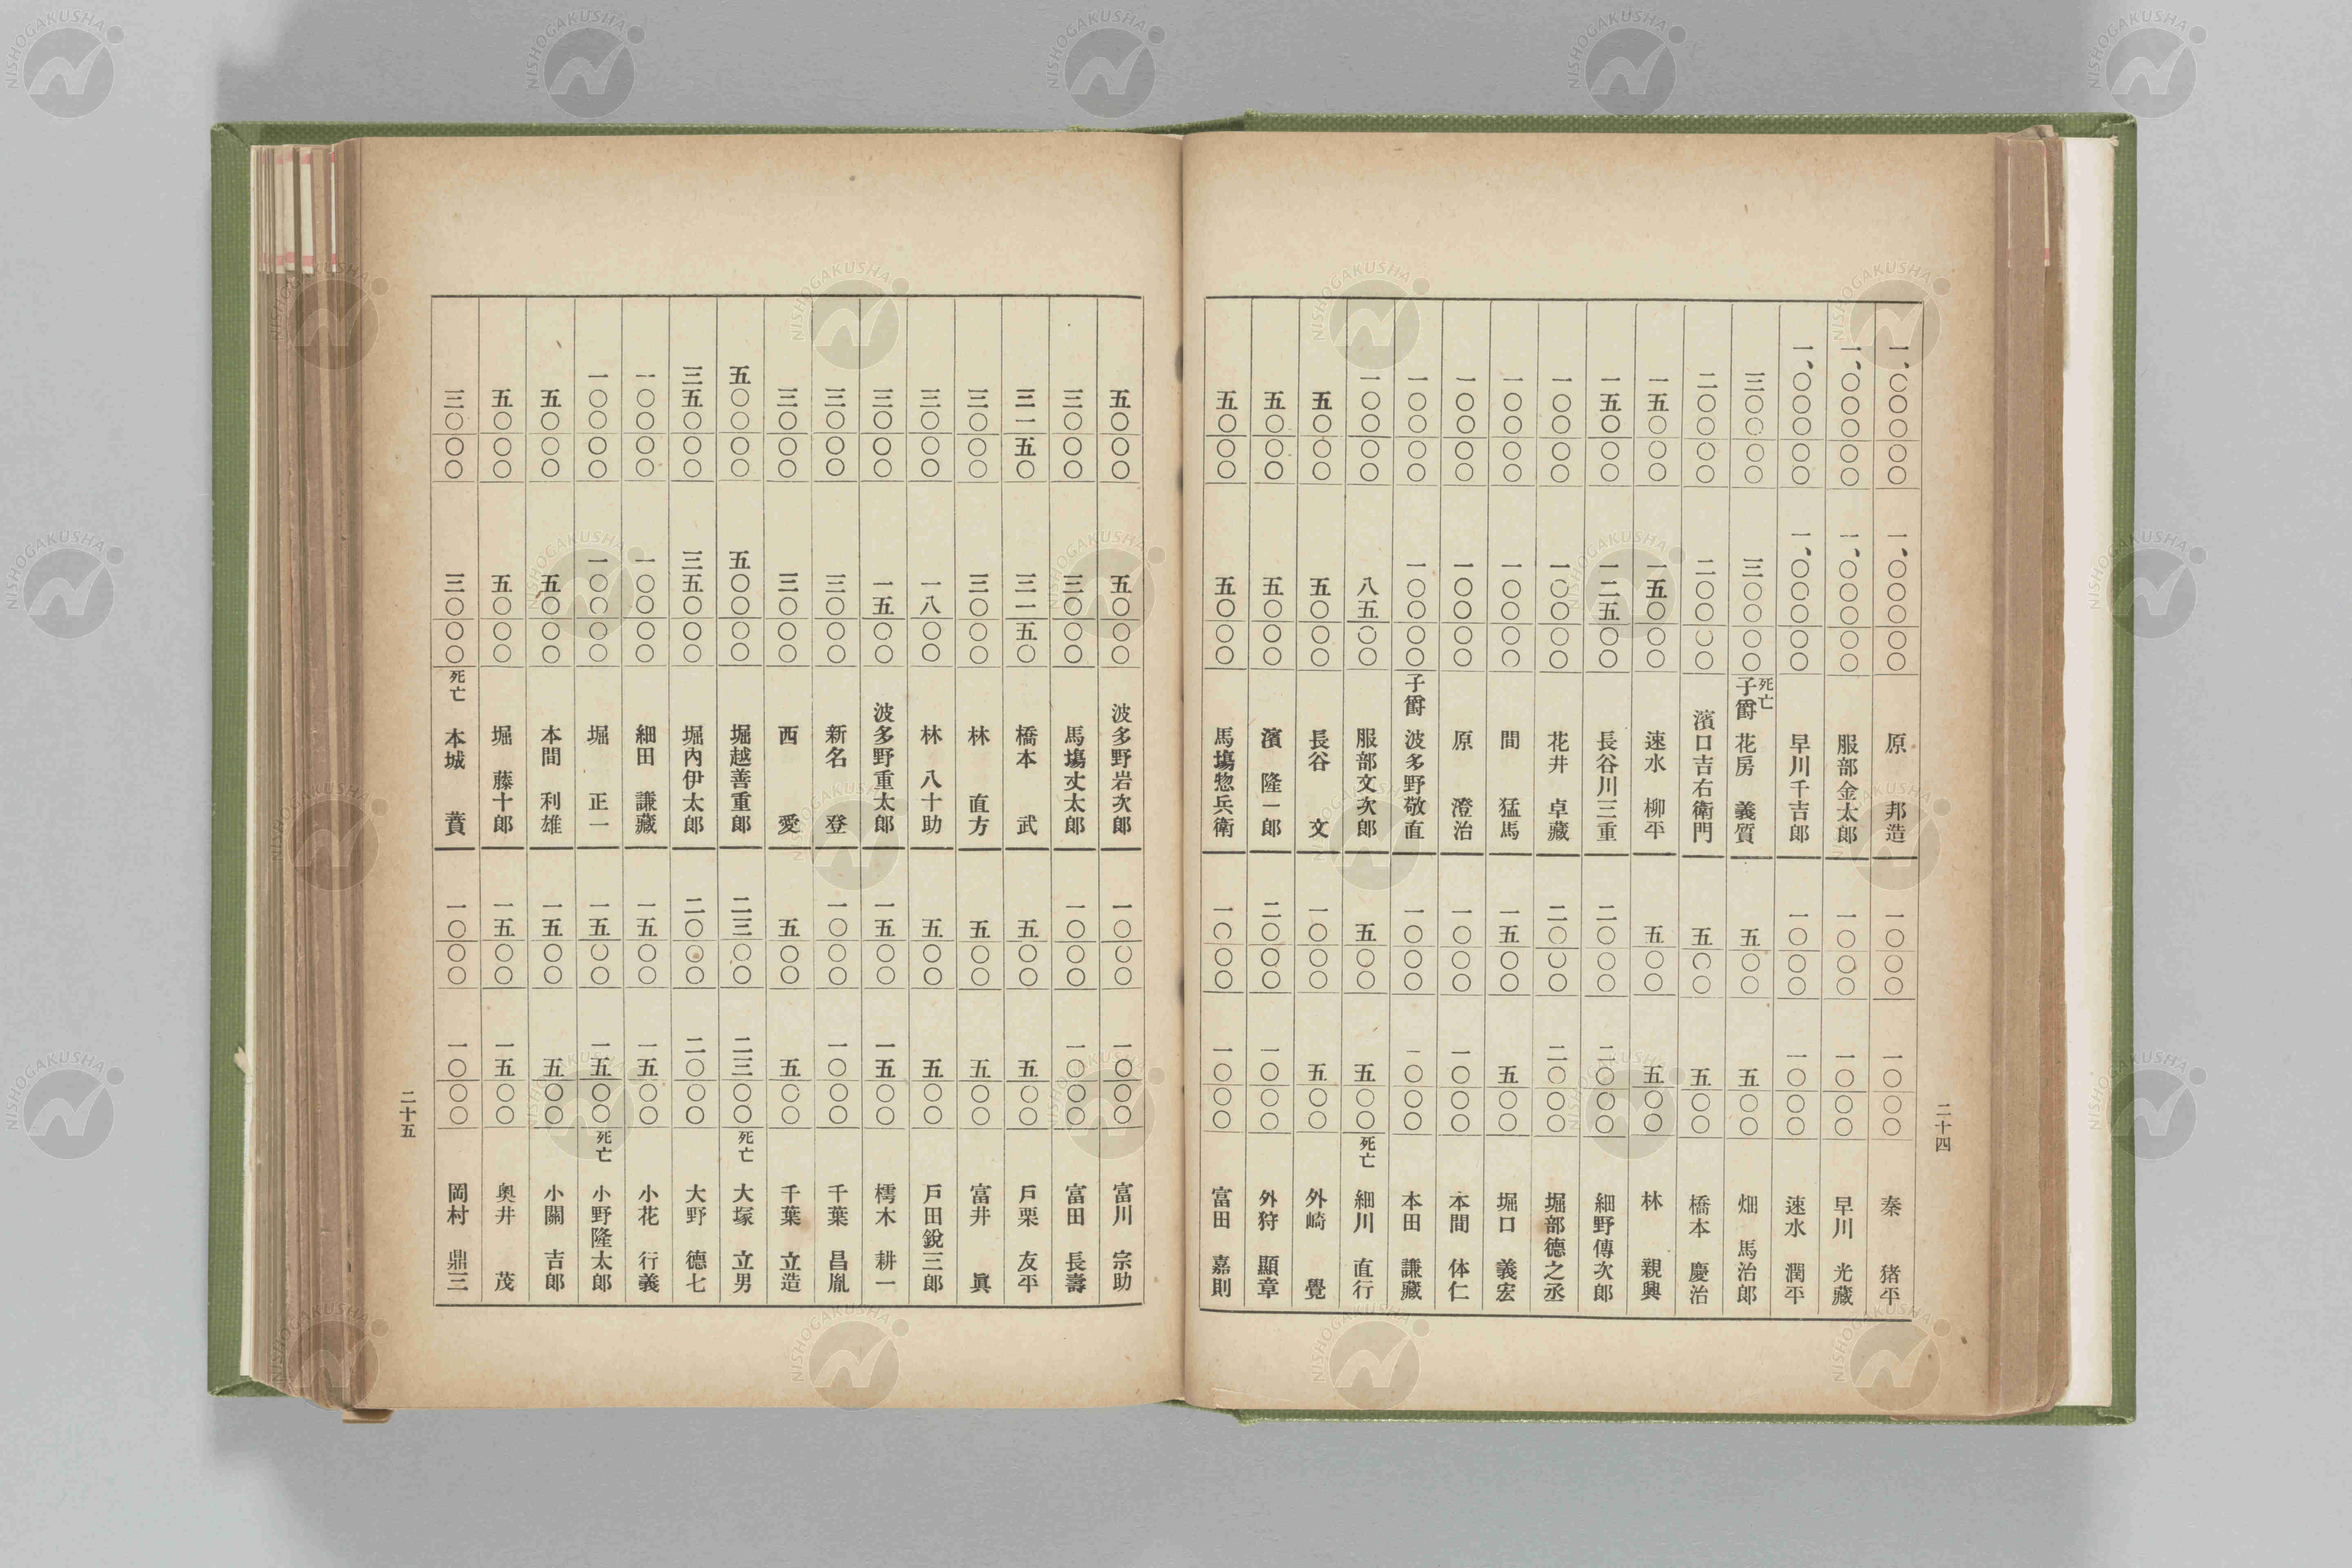 一、〇〇〇〇〇 一、〇〇〇〇〇 原 邦造
一、〇〇〇〇〇 一、〇〇〇〇〇 服部金太郎
一、〇〇〇〇〇 一、〇〇〇〇〇 早川千吉郎
三〇〇〇〇 三〇〇〇〇 死亡 子爵 花房 義質
二〇〇〇〇 二〇〇〇〇 濱口吉右衛門
一五〇〇〇 一五〇〇〇 速水 柳平
一五〇〇〇 一二五〇〇 長谷川三重
一〇〇〇〇 一〇〇〇〇 花井 卓藏
一〇〇〇〇 一〇〇〇〇 間 猛馬
一〇〇〇〇 一〇〇〇〇 原 澄治
一〇〇〇〇 一〇〇〇〇 子爵 波多野敬直
一〇〇〇〇 八五〇〇 服部文次郎
五〇〇〇 五〇〇〇 長谷 文
五〇〇〇 五〇〇〇 濱 隆一郎
五〇〇〇 五〇〇〇 馬塲惣兵衛
一〇〇〇 一〇〇〇 秦 猪平
一〇〇〇 一〇〇〇 早川 光藏
一〇〇〇 一〇〇〇 速水 潤平
五〇〇 五〇〇 畑 馬治郎
五〇〇 五〇〇 橋本 慶治
五〇〇 五〇〇 林 親興
二〇〇〇 二〇〇〇 細野傳次郎
二〇〇〇 二〇〇〇 堀部德之丞
一五〇〇 五〇〇 堀口 義宏
一〇〇〇 一〇〇〇 本間 体仁
一〇〇〇 一〇〇〇 本田 謙藏
五〇〇 五〇〇 死亡 細川 直行
一〇〇〇 五〇〇 外崎 覺
二〇〇〇 一〇〇〇 外狩 顯章
一〇〇〇 一〇〇〇 富田 嘉則
二十四
五〇〇〇 五〇〇〇 波多野岩次郎
三〇〇〇 三〇〇〇 馬塲丈太郎
三一五〇 三一五〇 橋本 武
三〇〇〇 三〇〇〇 林 直方
三〇〇〇 一八〇〇 林 八十助
三〇〇〇 一五〇〇 波多野重太郎
三〇〇〇 三〇〇〇 新名 登
三〇〇〇 三〇〇〇 西 愛
五〇〇〇〇 五〇〇〇〇 堀越善重郎
三五〇〇〇 三五〇〇〇 堀內伊太郎
一〇〇〇〇 一〇〇〇〇 細田 謙藏
一〇〇〇〇 一〇〇〇〇 堀 正一
五〇〇〇 五〇〇〇 本間 利雄
五〇〇〇 五〇〇〇 堀 藤十郎
三〇〇〇 三〇〇〇 死亡 本城 蕡
一〇〇〇 一〇〇〇 富川 宗助
一〇〇〇 一〇〇〇 富田 長壽
五〇〇 五〇〇 戸栗 友平
五〇〇 五〇〇 富井 眞
五〇〇 五〇〇 戸田銳三郎
一五〇〇 一五〇〇 樗木 耕一
一〇〇〇 一〇〇〇 千葉 昌胤
五〇〇 五〇〇 千葉 立造
二三〇〇 二三〇〇 死亡 大塚 立男
二〇〇〇 二〇〇〇 大野 德七
一五〇〇 一五〇〇 小花 行義
一五〇〇 一五〇〇 死亡 小野隆太郎
一五〇〇 五〇〇 小關 吉郎
一五〇〇 一五〇〇 奥井 茂
一〇〇〇 一〇〇〇 岡村 鼎三
二十五
NISHOGAKUSHA